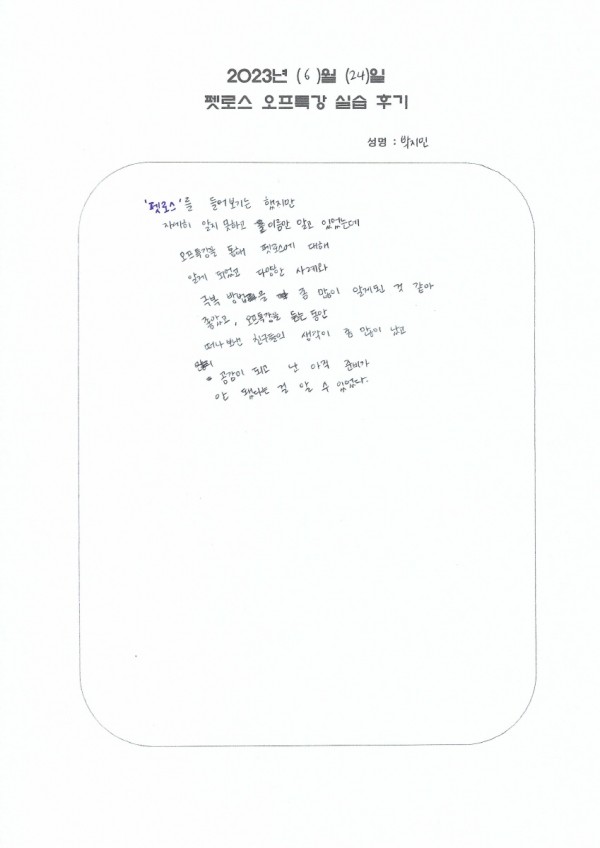 2023년 (6)월 (24)일
펫로스 오프특강 실습 후기
성명 : 박지민
'펫로스'를 들어보기는 했지만
자세히 알지 못하고 이름만 알고 있었는데
오프특강을 통해 펫로스에 대해
알게 되었고 다양한 사례와
극복 방법을 좀 많이 알게된 것 같아
좋았고, 오프특강을 듣는 동안
떠나보낸 친구들의 생각이 좀 많이 났고
공감이 되고 난 아직 준비가
안 됐다는 걸 알 수 있었다.